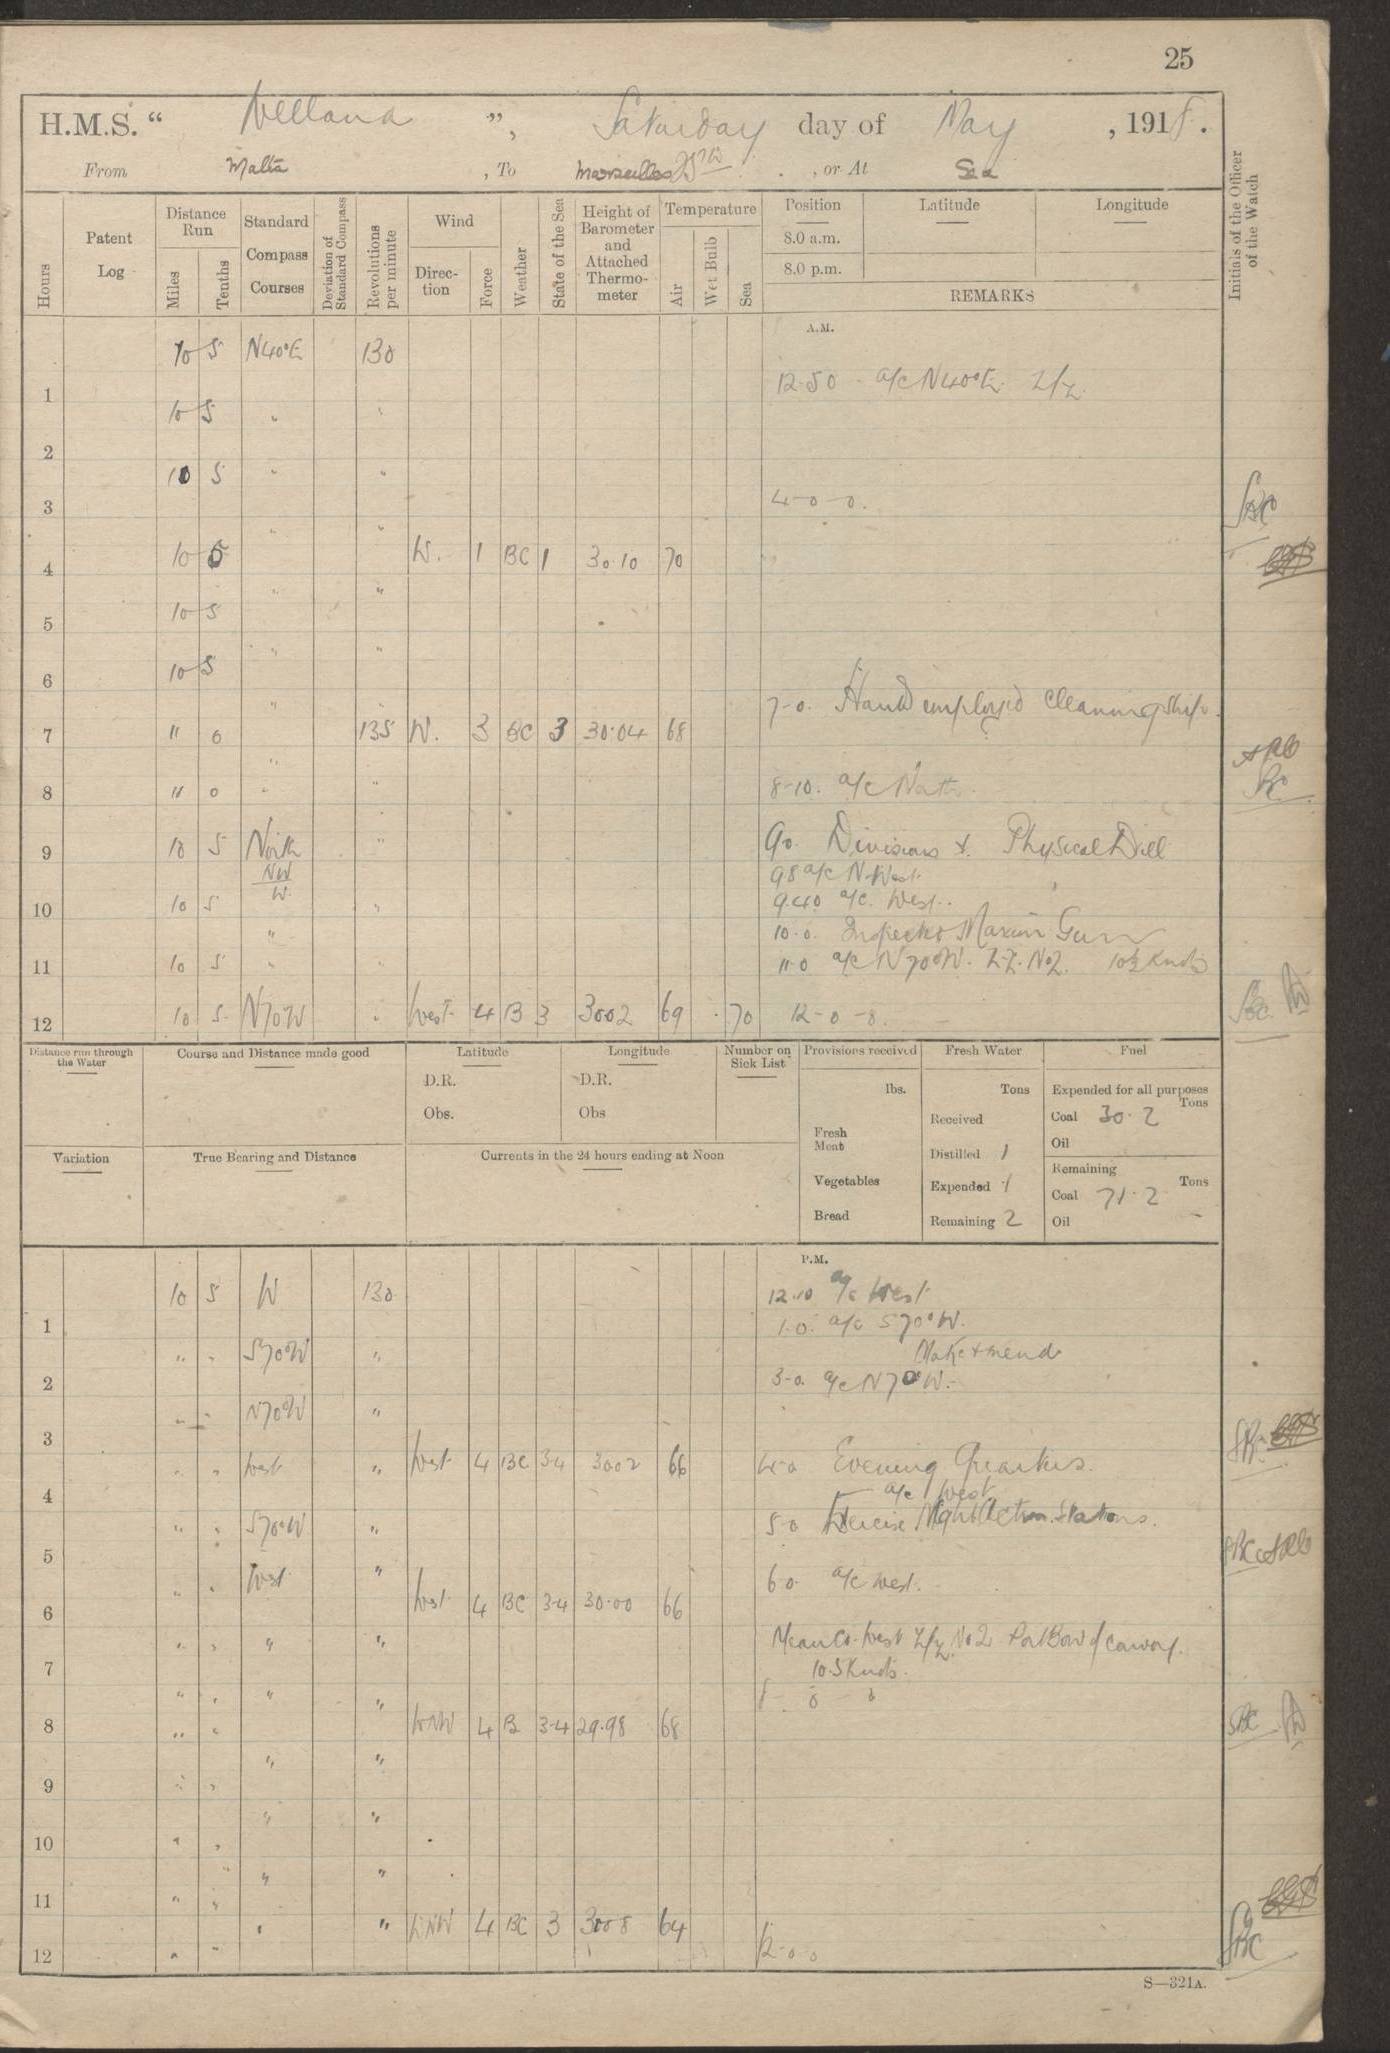 25
H.M.S. “ Welland ”, Saturday day of May , 1918.
From Malta , To Marseilles 25th , or At Sea
Hours
Patent Log
Distance Run
Miles
Tenths
Standard Compass Courses
Deviation of Standard Compass
Revolutions per minute
Wind
Direction
Force
Weather
State of the Sea
Height of Barometer and Attached Thermometer
Temperature
Air
Wet Bulb
Sea
Position
Latitude
Longitude
8.0 a.m.
8.0 p.m.
REMARKS
Initials of the Officer of the Watch
A.M.
10 5 N40°E 130
1 12.50 - a/c N40°E. Z/Z.
10 5 " "
2
10 5 " "
3 4-0-0.
" "
4 10 5 W. 1 BC 1 30.10 70
" "
5 10 5
" "
6 10 5
" 7-0. Hands employed cleaning ship.
7 " 0 135 W. 3 BC 3 30.04 68
"
8 " 0 " " 8-10. a/c North.
9 10 5 North " 9.0. Divisions & Physical Drill
NW 9.8 a/c N.West.
W.
10 10 5 " 9.40 a/c. West.
" 10.0. Inspected Maxim Gun
11 10 5 " " 11.0 a/c N70°W. Z.Z. No2. 10½ Knots
12 10 5 N70W " West 4 B 3 30.02 69 70 12-0-8.
Distance run through the Water
Course and Distance made good
Latitude
Longitude
Number on Sick List
Provisions received
Fresh Water
Fuel
D.R.
D.R.
lbs.
Tons
Expended for all purposes
Tons
Obs.
Obs
Received
Coal 30.2
Fresh Meat
Distilled 1
Oil
Variation
True Bearing and Distance
Currents in the 24 hours ending at Noon
Remaining
Tons
Vegetables
Expended 1
Coal 71.2
Bread
Remaining 2
Oil -
P.M.
10 5 W 130 12.10 a/c West
1 1.0. a/c S70°W.
" " S70°W " Make & mend
2 3-0. a/c N70°W.
" " N70°W "
3
" " West " West 4 BC 3-4 30.02 66 4-0 Evening Quarters.
4 a/c West
" " S70°W " 5.0 Exercise Night Action Stations.
5
" " West " 6.0. a/c West.
6 West 4 BC 3-4 30.00 66
" " " " Mean Co. West Z/Z. No2 Port Bow of convoy.
7 10.5 Knots.
" " " " 8 - 0 - 0
8 " " WNW 4 B 3-4 29.98 68
" "
9 " "
" "
10 " "
" "
11 " "
" " WNW 4 BC 3 30.08 64
12 " " 12-0-0
S—321A.